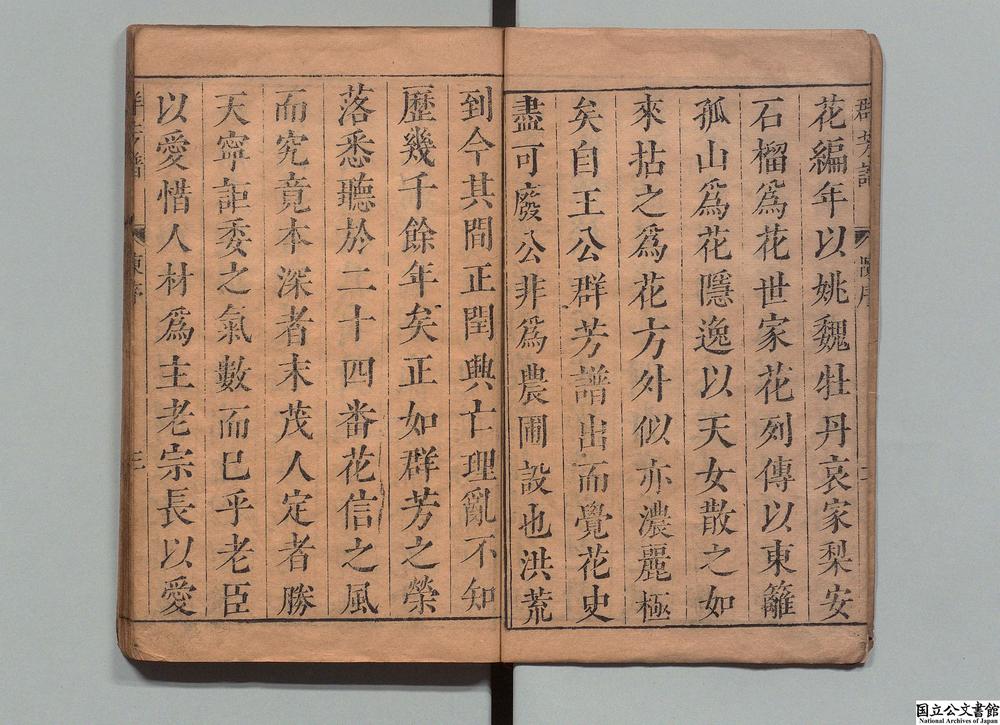 花編年以姚魏牡丹哀家梨安
石榴爲花世家花列傳以東籬
孤山爲花隱逸以天女散之如
來拈之爲花方外似亦濃麗極
矣自王公群芳譜出而覺花史
盡可廢公非爲農圃設也洪荒
到今其間正閏興亡理亂不知
歷幾千餘年矣正如群芳之榮
落悉聽於二十四番花信之風
而究竟本深者末茂人定者勝
天寧詎委之氣數而已乎老臣
以愛惜人材爲主老宗長以愛
国立公文書館
National Archives of Japan